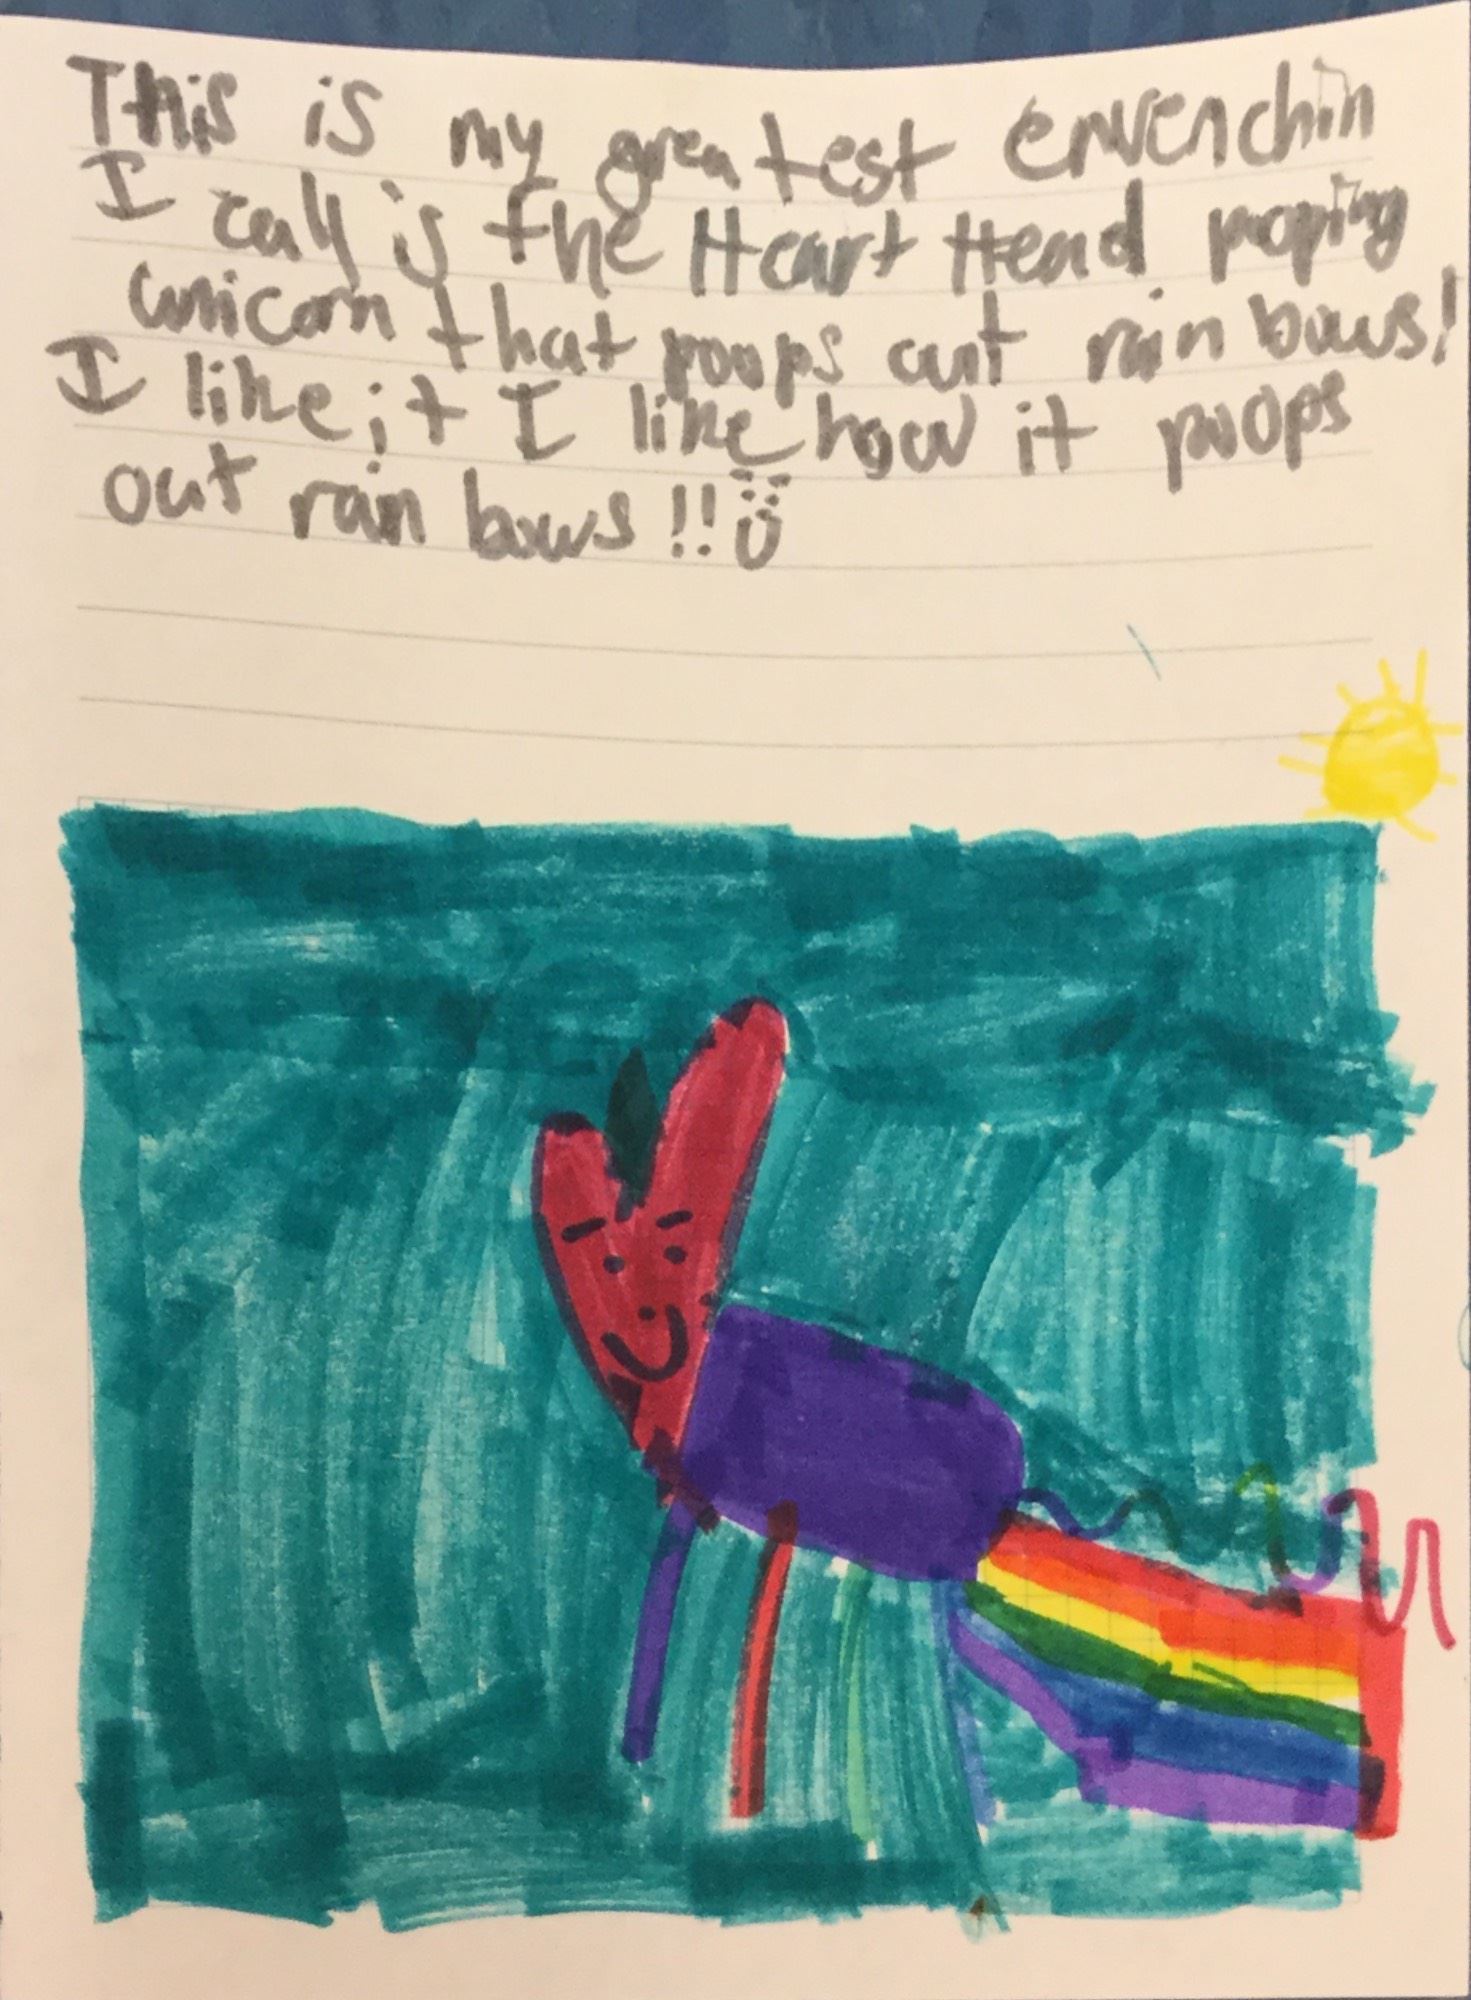 This is my greatest envenchin
I call is the Heart Head pooping
unicorn that poops out rain bows!
I like it I like how it poops
out rain bows!!